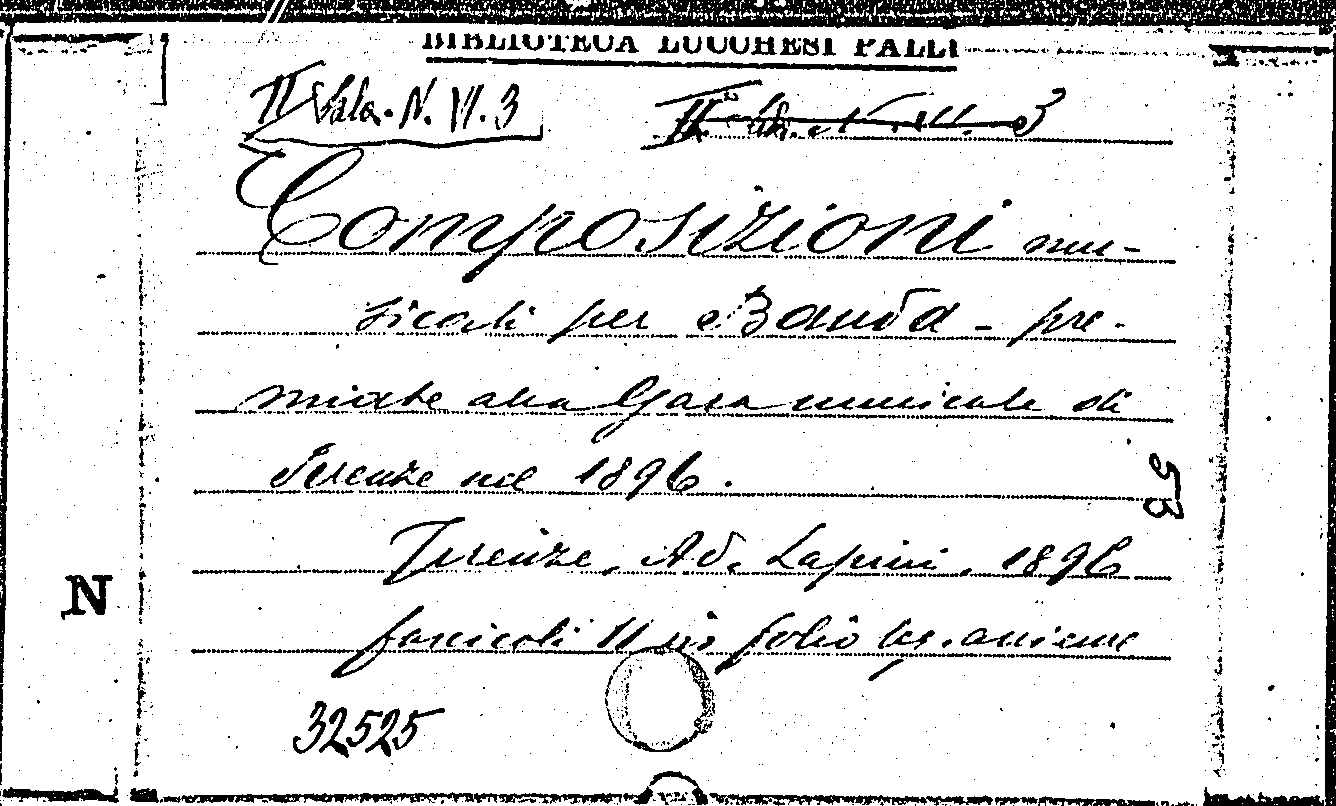 BIBLIOTECA LUCCHESI PALLI
II Sala. N. VI. 3
Composizioni mu-
sicali per Banda - pre-
miate alla Gara musicale di
Firenze nel 1896.
53
Firenze, Ad. Lapini, 1896
N
fascicoli 11 in folio leg. assieme
32525